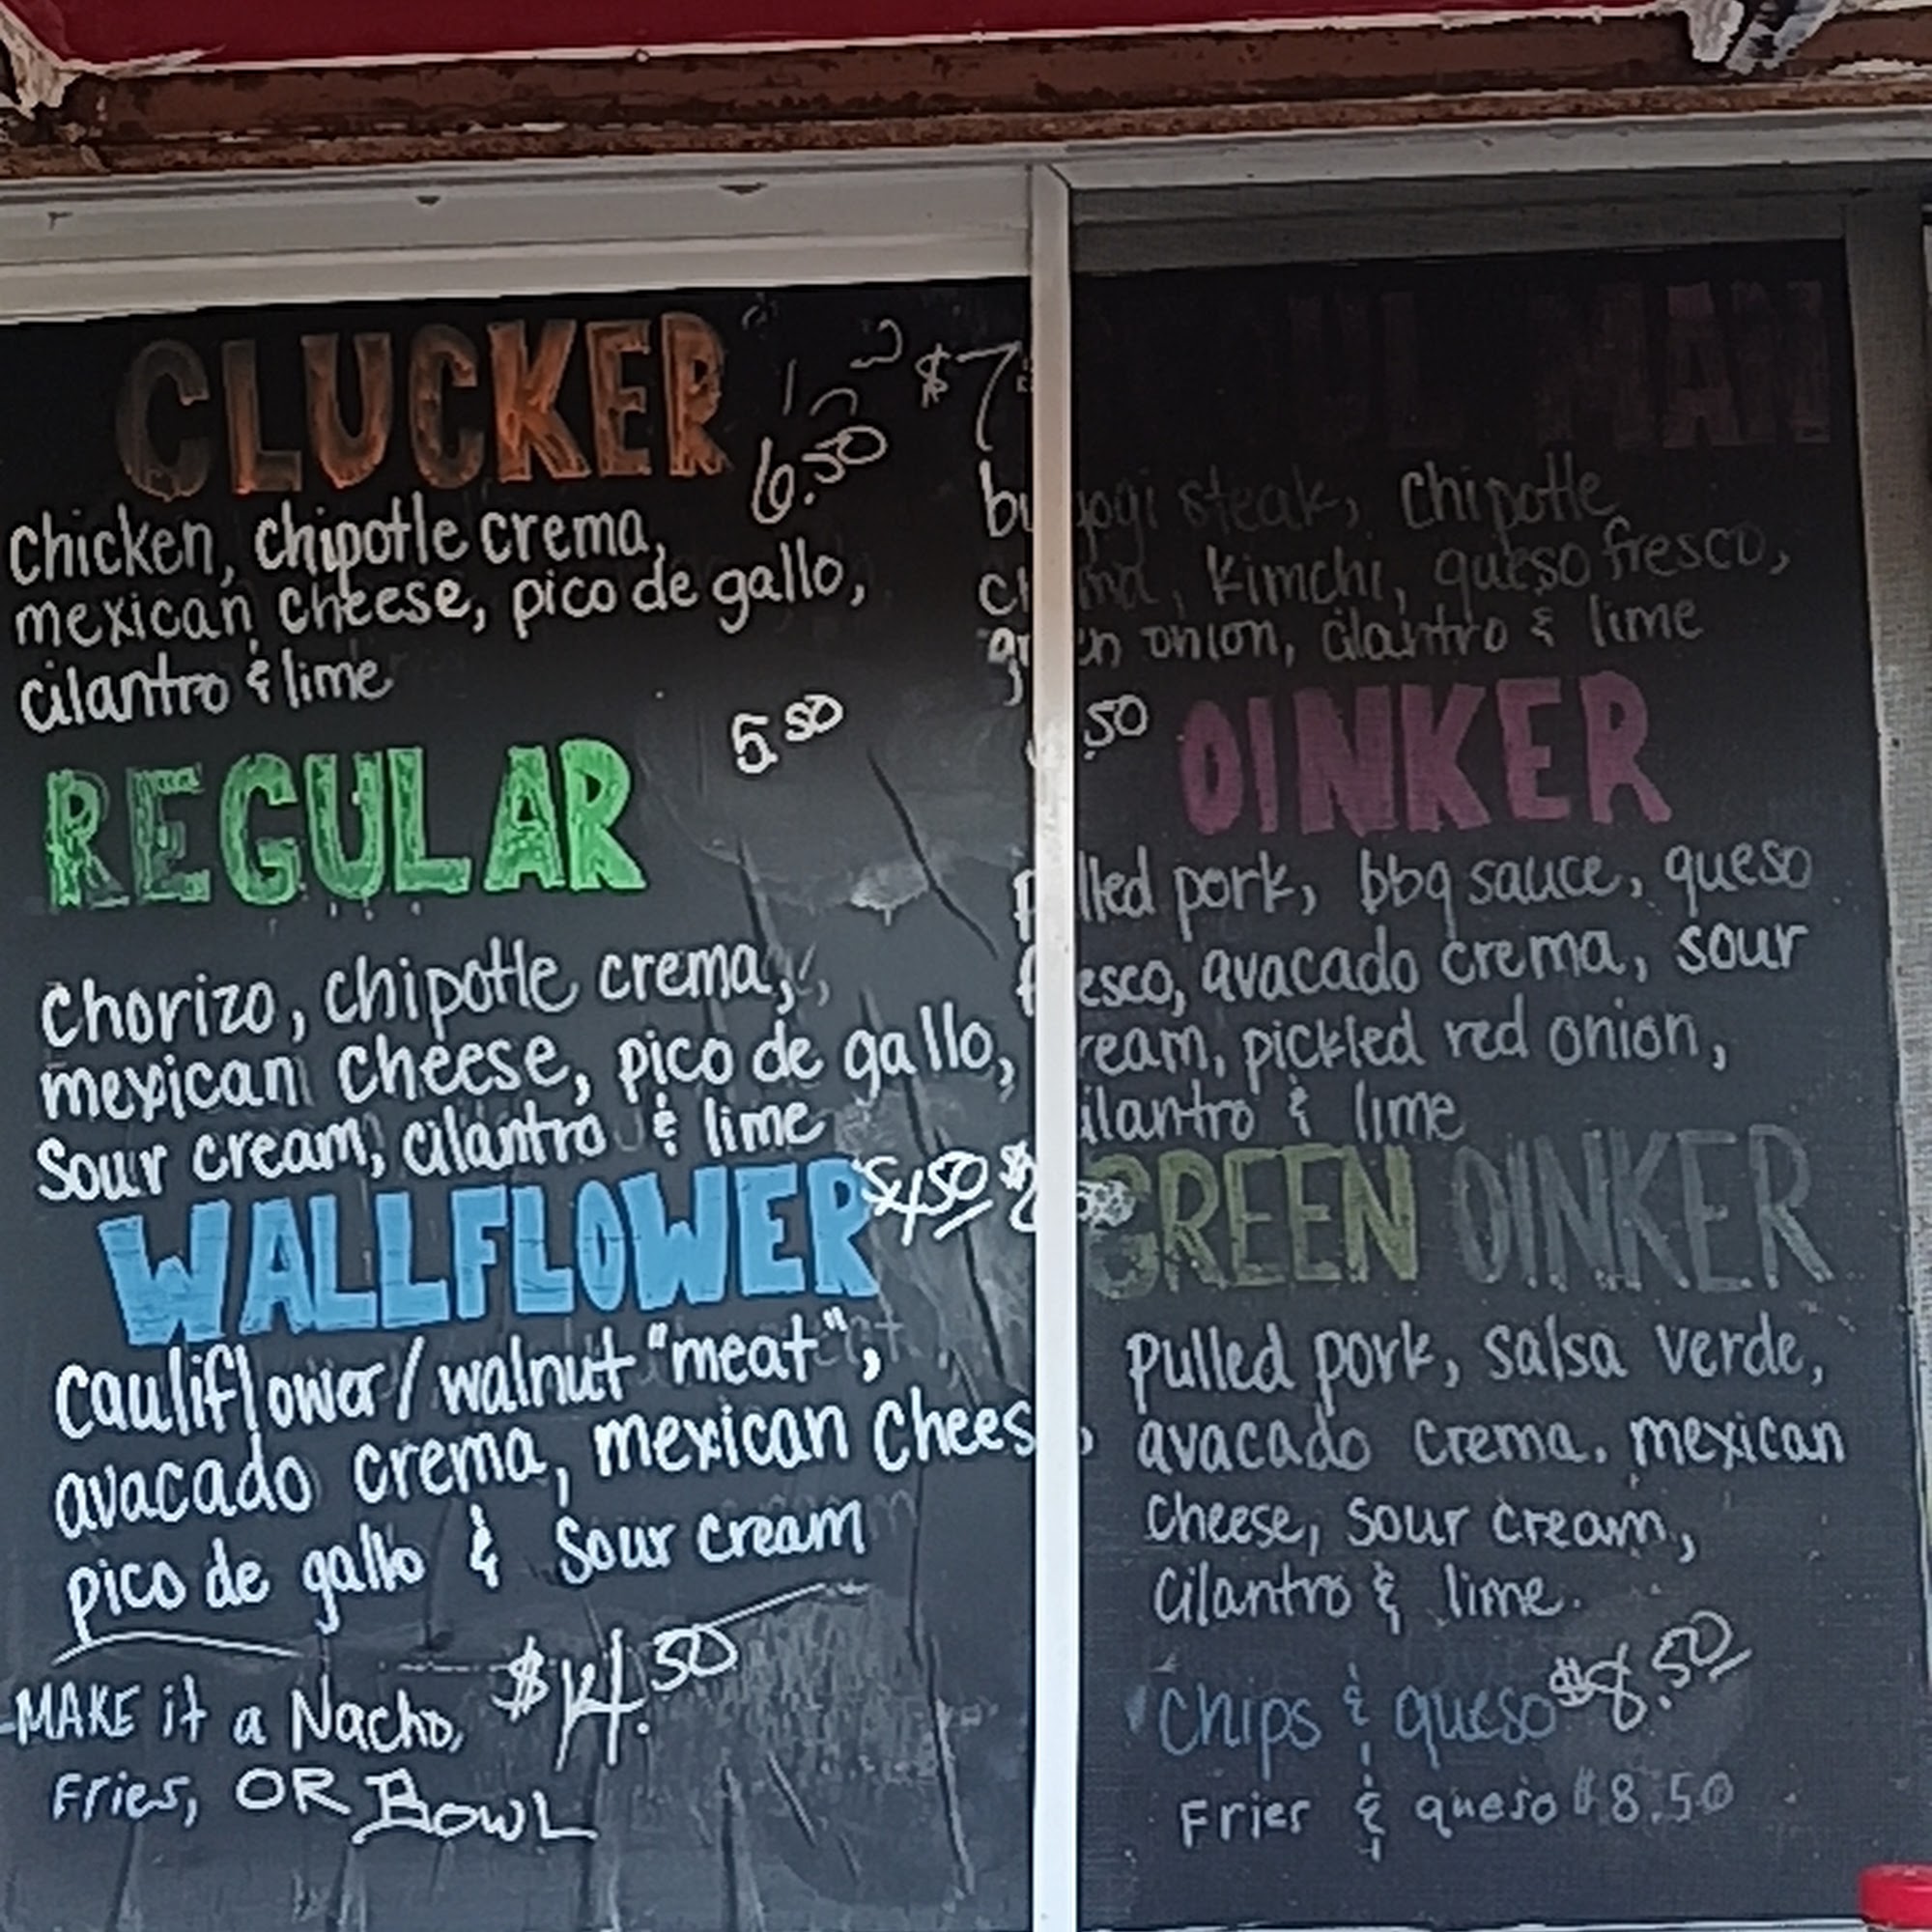 CLUCKER
6.50
Chicken, chipotle crema,
mexican cheese, pico de gallo,
cilantro & lime
5.50
REGULAR
Chorizo, chipotle crema,
mexican cheese, pico de gallo,
Sour cream, cilantro & lime
WALLFLOWER $4.50
Cauliflower/walnut "meat",
avacado crema, mexican chees
pico de gallo & Sour cream
MAKE it a Nacho, $14.50
Fries, OR BOWL
$7
MAN
steak, Chipotle
kimchi, queso fresco,
onion, cilantro & lime
.50 OINKER
pork, bbq sauce, queso
avacado crema, sour
pickled red onion,
& lime
GREEN OINKER
pulled pork, salsa verde,
avacado crema. mexican
cheese, sour cream,
cilantro & lime.
Chips & queso $8.50
Fries & queso $8.50